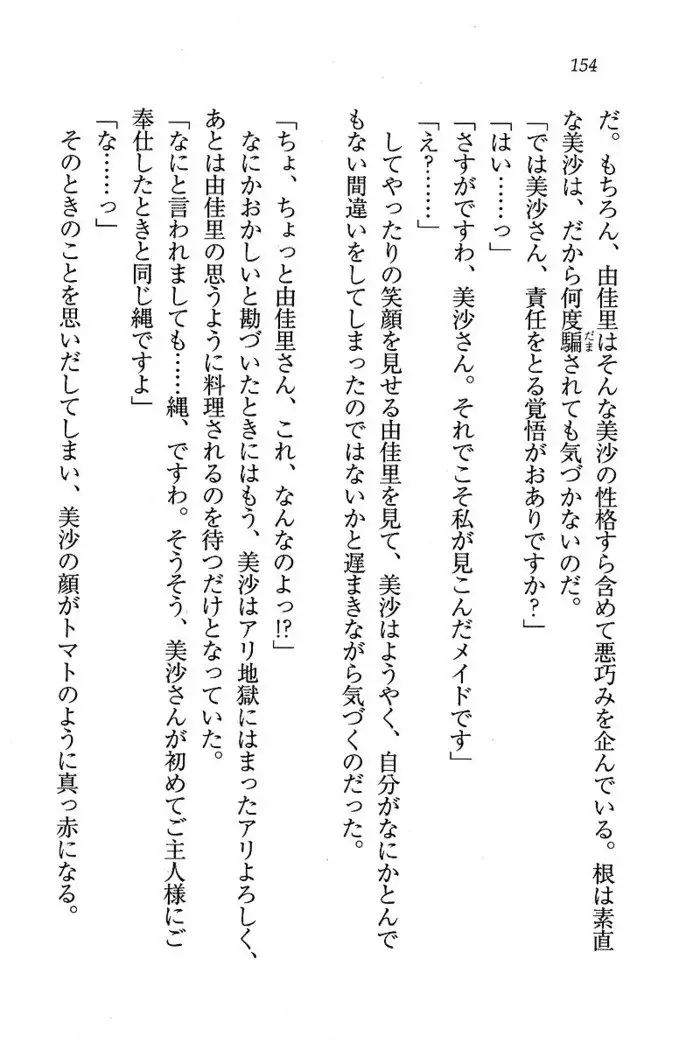 154
だ。もちろん、由佳里はそんな美沙の性格すら含めて悪巧みを企んでいる。根は素直
な美沙は、だから何度騙されても気づかないのだ。
だま
「では美沙さん、責任をとる覚悟がおありですか？」
「はい……っ」
「さすがですわ、美沙さん。それでこそ私が見こんだメイドです」
「え？………」
してやったりの笑顔を見せる由佳里を見て、美沙はようやく、自分がなにかとんで
もない間違いをしてしまったのではないかと遅まきながら気づくのだった。
「ちょ、ちょっと由佳里さん、これ、なんなのよっ!?」
なにかおかしいと勘づいたときにはもう、美沙はアリ地獄にはまったアリよろしく、
あとは由佳里の思うように料理されるのを待つだけとなっていた。
「なにと言われましても……縄、ですわ。そうそう、美沙さんが初めてご主人様にご
奉仕したときと同じ縄ですよ」
「な……っ」
そのときのことを思いだしてしまい、美沙の顔がトマトのように真っ赤になる。